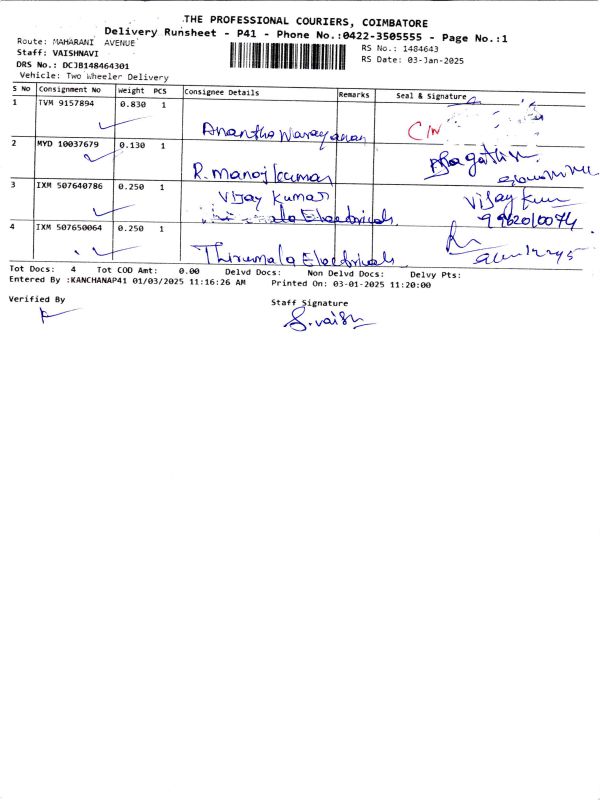 THE PROFESSIONAL COURIERS, COIMBATORE
Delivery Runsheet - P41 - Phone No.:0422-3505555 - Page No.:1
Route: MAHARANI AVENUE
RS No.: 1484643
Staff: VAISHNAVI
RS Date: 03-Jan-2025
DRS No.: DCJB148464301
Vehicle: Two Wheeler Delivery
S No Consignment No Weight PCS Consignee Details Remarks Seal & Signature
1 TVM 9157894 0.830 1
Anantha Narayanan C/N
2 MYD 10037679 0.130 1
R. Manoj kumar
3 IXM 507640786 0.250 1
Vijay Kumar Vijay Kum
Electricals 9962010074
4 IXM 507650064 0.250 1
Thirumala Electricals
Tot Docs: 4 Tot COD Amt: 0.00 Delvd Docs: Non Delvd Docs: Delvy Pts:
Entered By :KANCHANAP41 01/03/2025 11:16:26 AM Printed On: 03-01-2025 11:20:00
Verified By
Staff Signature
S. vaish